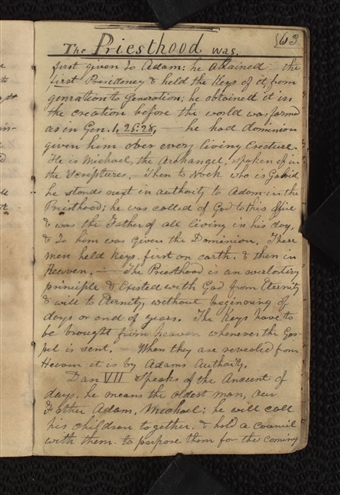 63
The Priesthood was,
first given to Adam; he obtained the
first Presidency & held the Keys of it, from
generation to Generation; he obtained it in
the creation before the world was formed
as in Gen. 1, 26:28, — he had dominion
given him over every living Creature.
He is Michael, the Archangel, spoken of in
the Scriptures, Then to Noah who is Gabriel
he stands next in authority to Adam in the
Priesthood; he was called of God to this office
& was the Father of all living in his day,
& To him was given the Dominion, These
men held Keys, first on earth, & then in
Heaven. — The Priesthood is an everlasting
principle & Existed with God from Eternity
& will to Eternity, without beginning of
days or end of years. The Keys have to
be brought from heaven whenever the Gos-
pel is sent. — When they are revealed from
Heaven it is by Adams Authority,
Dan VII Speaks of the Ancient of
days, he means the oldest man, our
Father Adam, Michael; he will call
his children together, & hold a council
with them to prepare them for the coming